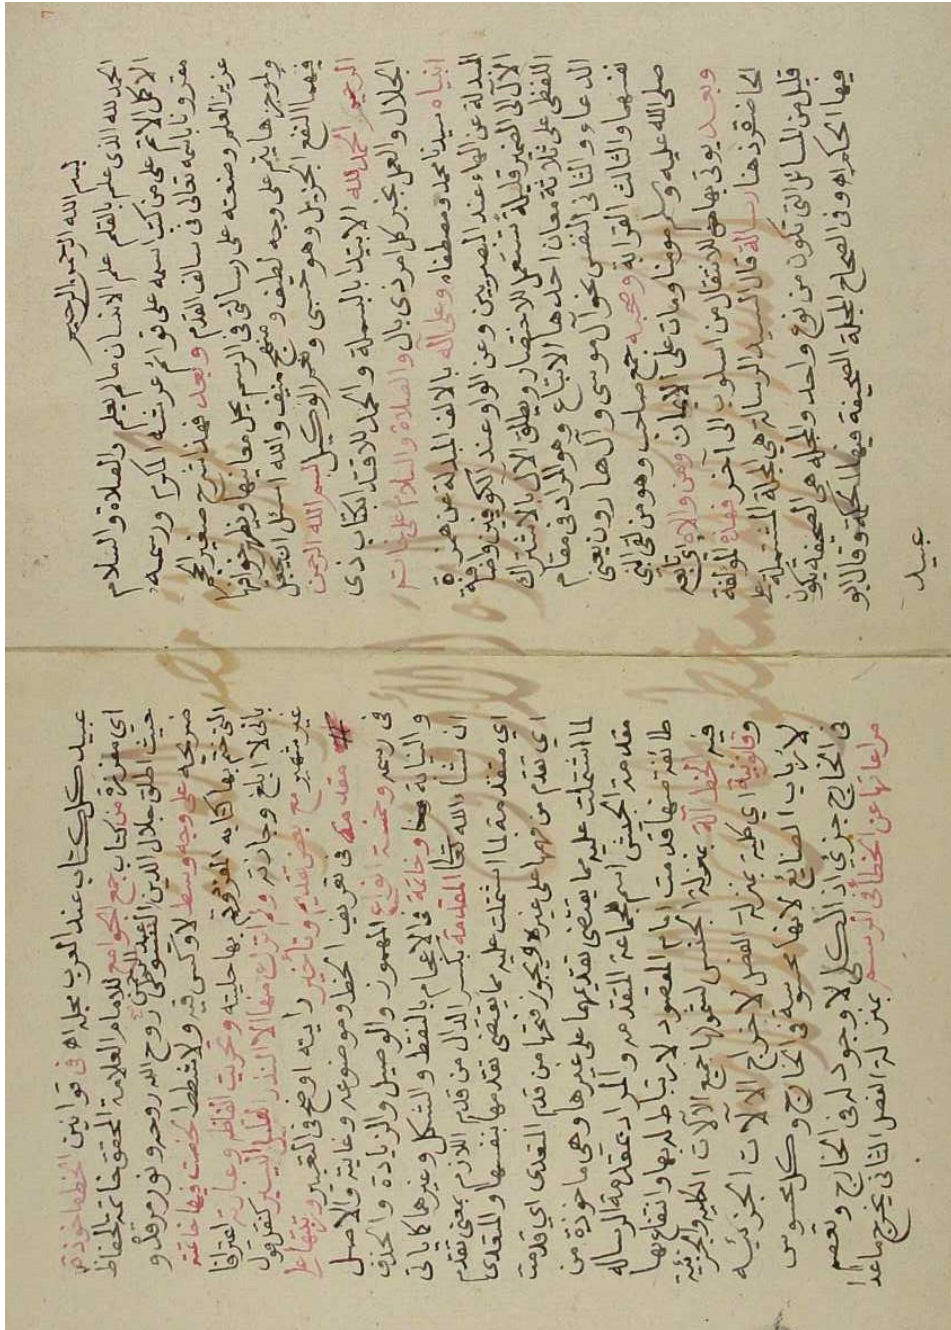 بسم الله الرحمن الرحيم
الحمد لله الذى علم بالقلم علم الانسان مالم يعلم والصلاة والسلام
الاكمل الاعم على من كتب اسمه على قوائم عرشه المكرم ورسمه
مقرونا باسمه تعالى فى سالف القدم وبعد فهذا شرح صغير الحجم
عزيز العلم وضعته على رسالتى فى الرسم يحل معانيها ويظهر خوافيها
ولموجزها يتم على وجه لطيف ومنهج منيف والله اسئل ان يجعل
فيهما النفع الجزيل وهو حسبى ونعم الوكيل بسم الله الرحمن
الرحيم الحمد لله الابتدا بالبسملة والحمد للاقتدا بكتاب ذى
الجلال والعمل بخبر كل امر ذى بال والصلاة والسلام على خاتم
انبياه سيدنا محمد ومصطفاه وعلى اله بالالف المبدلة عن همزة
المبدلة عن الهاء عند البصريين وعن الواو عند الكوفيين واضافة
الآل الى الضمير قليلة تستعمل للاختصار ويطلق الآل بالاشتراك
اللفظى على ثلاثة معان احدها الاتباع وهو المراد فى مقام
الدعاء والثانى النفس نحو آل موسى وآل هارون يعنى
نفسهما والثالث القرابة وصحبه جمع صاحب وهو من لقى النبى
صلى الله عليه وسلم مومنا ومات على الايمان ومن والاه اى تابعه
وبعد يوتى بها للانتقال من اسلوب الى آخر فهذه المولفة
الحاضة ذهنا رسالة قال السيد الرسالة هى المجلة المشتملة على
قليل من المسائل التى تكون من نوع واحد والمجلة هى الصحيفة يكون
فيها الحكم اهـ وفى الصحاح المجلة الصحيفة فيها الحكمة وقال ابو
عبيد
عبيد كل كتاب عند العرب مجلة اهـ فى قوانين الخط ماخوذة
اى مفرزة من كتاب جمع الجوامع للامام العلامة المحقق خاتمة الحفاظ
حيث اطلق جلال الدين عبد الرحمن السيوطى روح الله روحه ونور مرقده و
ضريحه على وجه وسط لا وكس فيه ولا شطط لخصت فيها خاتمته
التى ختم بها كتابه المفروقة بها حليته وتحريت الفاظه وعباراته لعترافا
بانى لا ابلغ وجازته ولم اترك منها الا النذر القليل اليسير كنقل قول
غير مشهور مع بعض تقديم وتأخير رايته اوضح فى التعبير ورتبتها على
مقدمة فى تعريف الخط وموضوعه وغايته والاصل
فى رسمه وخمسة انواع المهموز والوصل والزيادة والحذف
والنيابة وخاتمة فى الاعجام بالنقط والشكل وغيرهما كما ياتى
ان شاء الله تعا المقدمة بكسر الدال من قدم اللازم بمعنى تقدم
اى متقدمة لما اشتملت عليه مما يقتضى تقدمها بنفسها والمتعدى
اى تقدم من فهمها على غيره ويجوز فتحها من قدم المتعدى اى قدمت
لما اشتملت عليه مما يقتضى تقديمها على غيرها وهى ماخوذة من
مقدمة الجيش اسم لجماعة المتقدمة والمراد بمقدمة الرسالة
طائفة منها قدمت امام المقصود لارتباط له بها وانتفاع بها
فيه الخط آلة بمنزلة الجنس لشمولها جميع الآلات الكلية والجزئية
وقانونية اى كلية بمنزلة الفصل لاخراج الالات الجزئية
لارباب الصنائع لانها محسوسة فى الخارج وكل محسوس
فى الخارج جزئى اذ الكلى لا وجود له فى الخارج وتعصم
مراعاتها عن الخطأ فى الرسم بمنزلة الفصل الثانى يخرج ما عدا